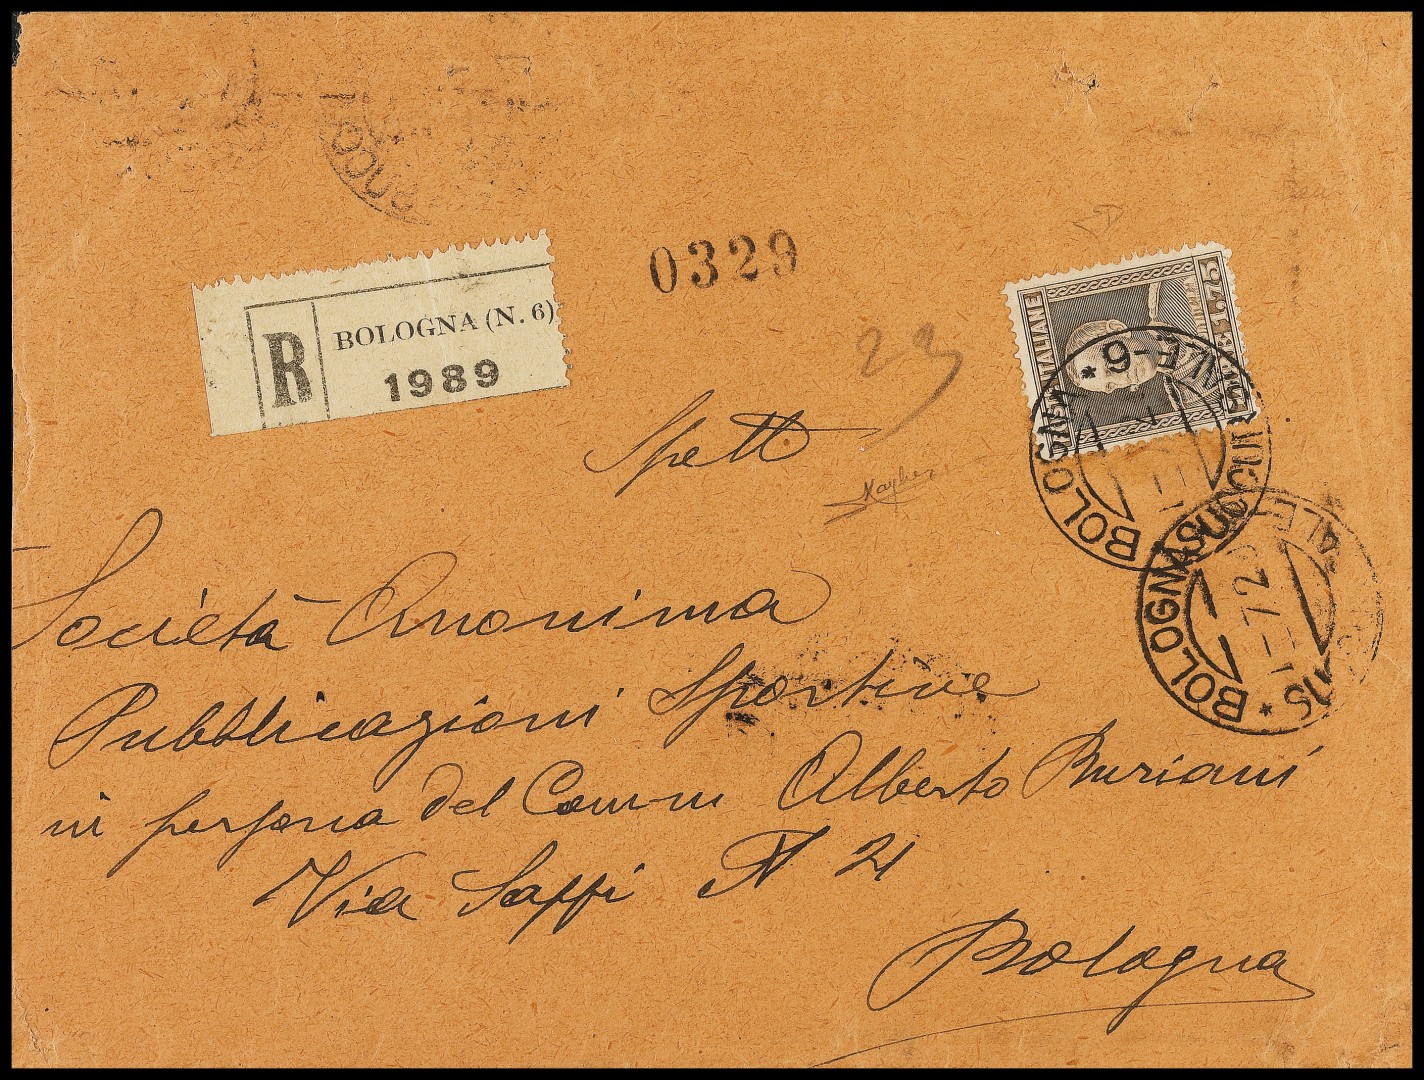 0329
R BOLOGNA (N. 6)
1989
23
POSTE ITALIANE
BOLOGNA SUCCURSALE - 6 *
Spett
Società Anonima
Pubblicazioni Sportive
in persona del Comm Alberto Buriani
Via Saffi N 21
Bologna
BOLOGNA SUCCURSALE *